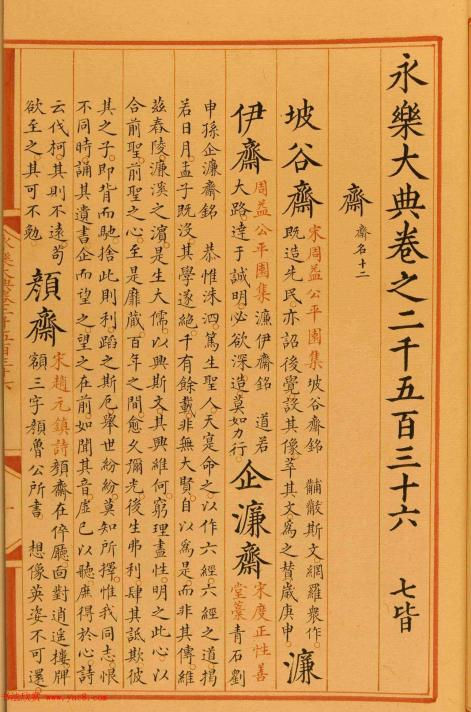 永樂大典卷之二千五百三十六 七皆
齋 齋名十二
坡谷齋 宋周益公平園集坡谷齋銘 黼黻斯文網羅衆作
既造先民亦詔後覺設其像萃其文為之贊歲庚申 濂
伊齋 周益公平園集濂伊齋銘 道若
大路達于誠明必欲深造莫如力行 企濂齋 宋度正性善
堂藁青石劉
申孫企濂齋銘 恭惟洙泗篤生聖人天寔命之以作六經六經之道揭
若日月孟子既没其學遂絶千有餘載非無大賢自以為是而非其傳維
兹舂陵濂溪之濵是生大儒以興斯文其興維何窮理盡性明之此心以
合前聖前聖之心至是靡蔵百年之間愈久彌光後生弗利肆其詆欺彼
其之子即背而馳捨此則利蹈之斯厄舉世紛紛莫知所擇惟我同志恨
不同時誦其遺書企而望之望之在前如聞其音虛已以聽庶得於心詩
云伐柯其則不遠茍
欲至之其可不勉 顔齋 宋趙元鎮詩顔齋在倅廳面對逍遥樓牌
額三字顔魯公所書 想像英姿不可還
永樂大典卷二千五百三十六